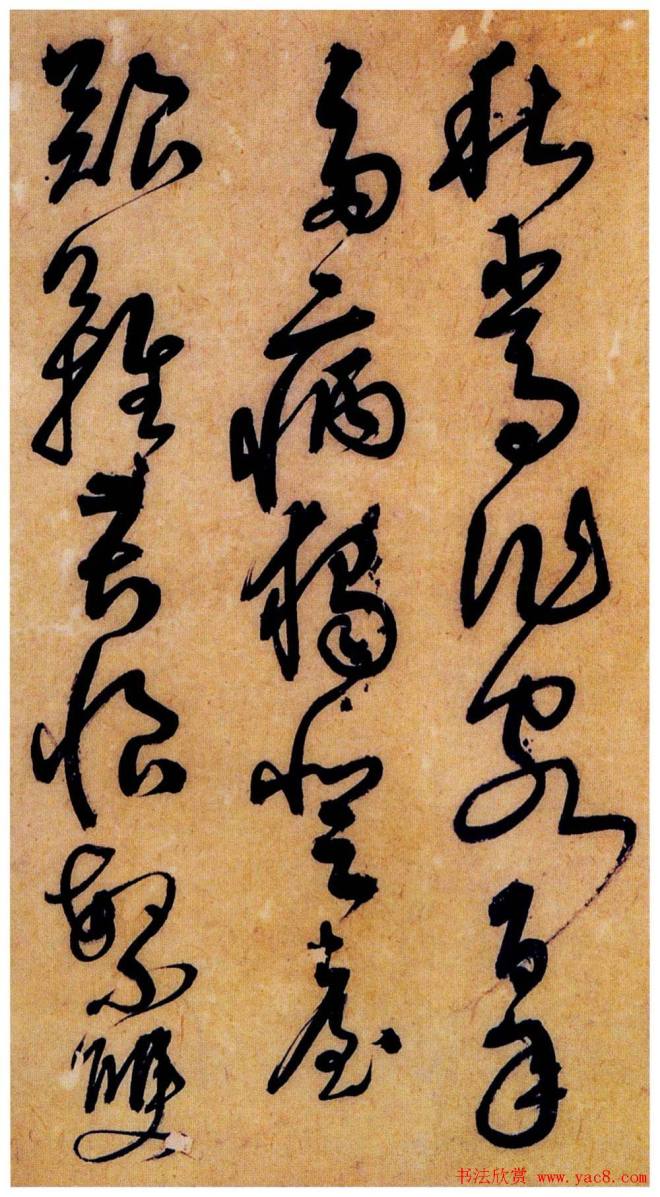 秋常作客百年
多病獨登臺
艱難苦恨繁雙
书法欣赏 www.yac8.com